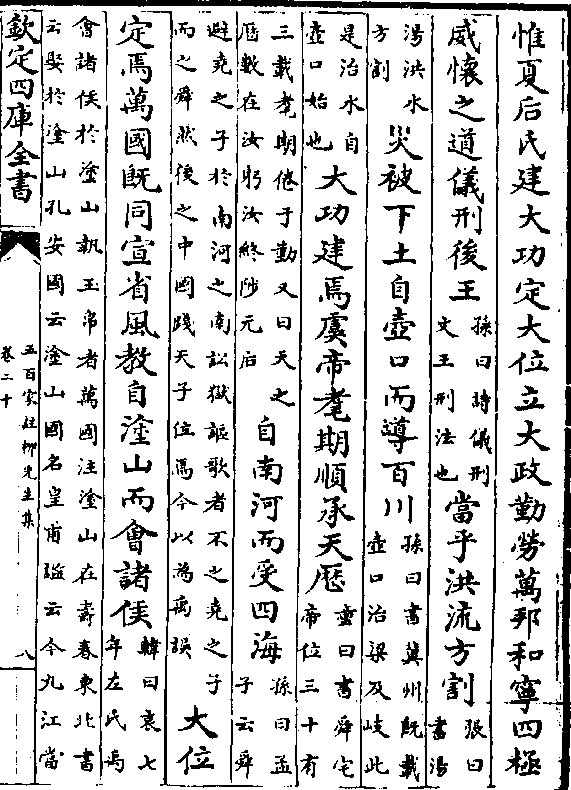 惟夏后氏建大功定大位立大政勤勞萬邦和寧四極
威懷之道儀刑後王孫曰詩儀刑文王刑法也當乎洪流方割張曰書湯
湯洪水方割災被下土自壺口而導百川孫曰書冀州既載壺口治梁及岐此
是治水自壺口始也大功建焉虞帝耄期順承天厯童曰書舜宅帝位三十有
三載耄期倦于勤又曰天之厯數在汝躬汝終陟元后自南河而受四海孫曰孟子云舜
避堯之子於南河之南訟獄謳歌者不之堯之子而之舜然後之中國踐天子位焉今以為禹誤大位
定焉萬國既同宣省風教自塗山而會諸侯韓曰哀七年左氏禹
會諸侯於塗山執玉帛者萬國注塗山在壽春東北書云娶於塗山孔安國云塗山國名皇甫謐云今九江當
欽定四庫全書
五百家註柳先生集
卷二十
八